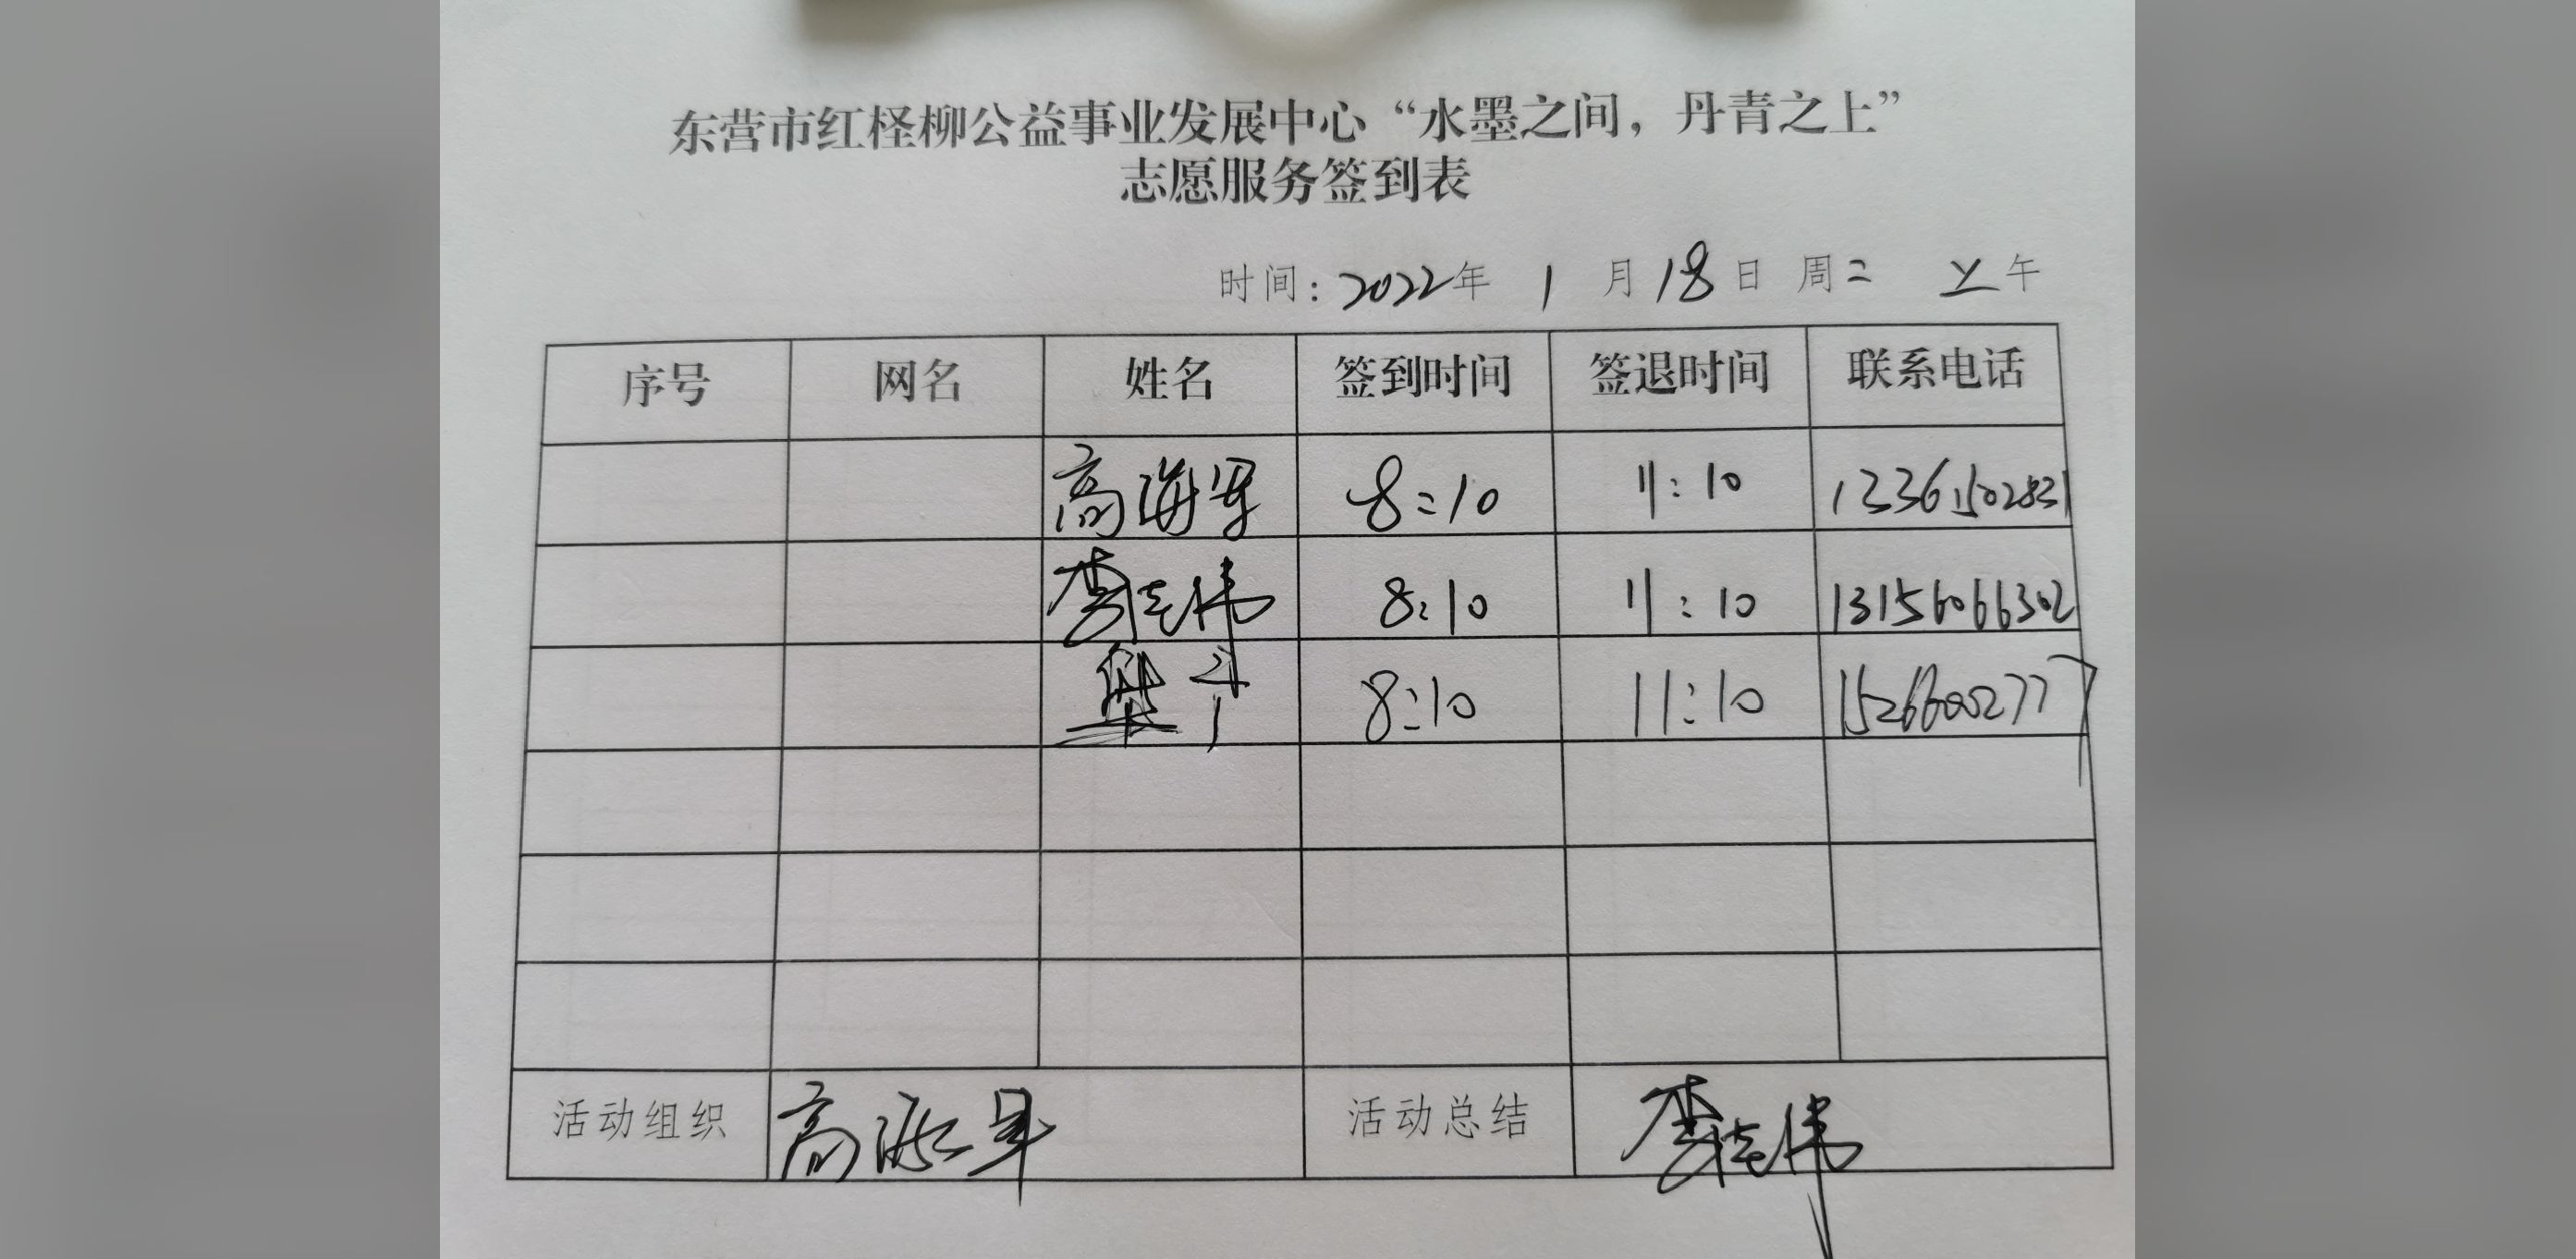 东营市红柽柳公益事业发展中心“水墨之间，丹青之上”
志愿服务签到表
时间：2022年 1 月 18 日 周二 上午
序号 网名 姓名 签到时间 签退时间 联系电话
高海军 8:10 11:10 13361502831
李志伟 8:10 11:10 13156066302
8:10 11:10 15266002777
活动组织 高海军 活动总结 李志伟